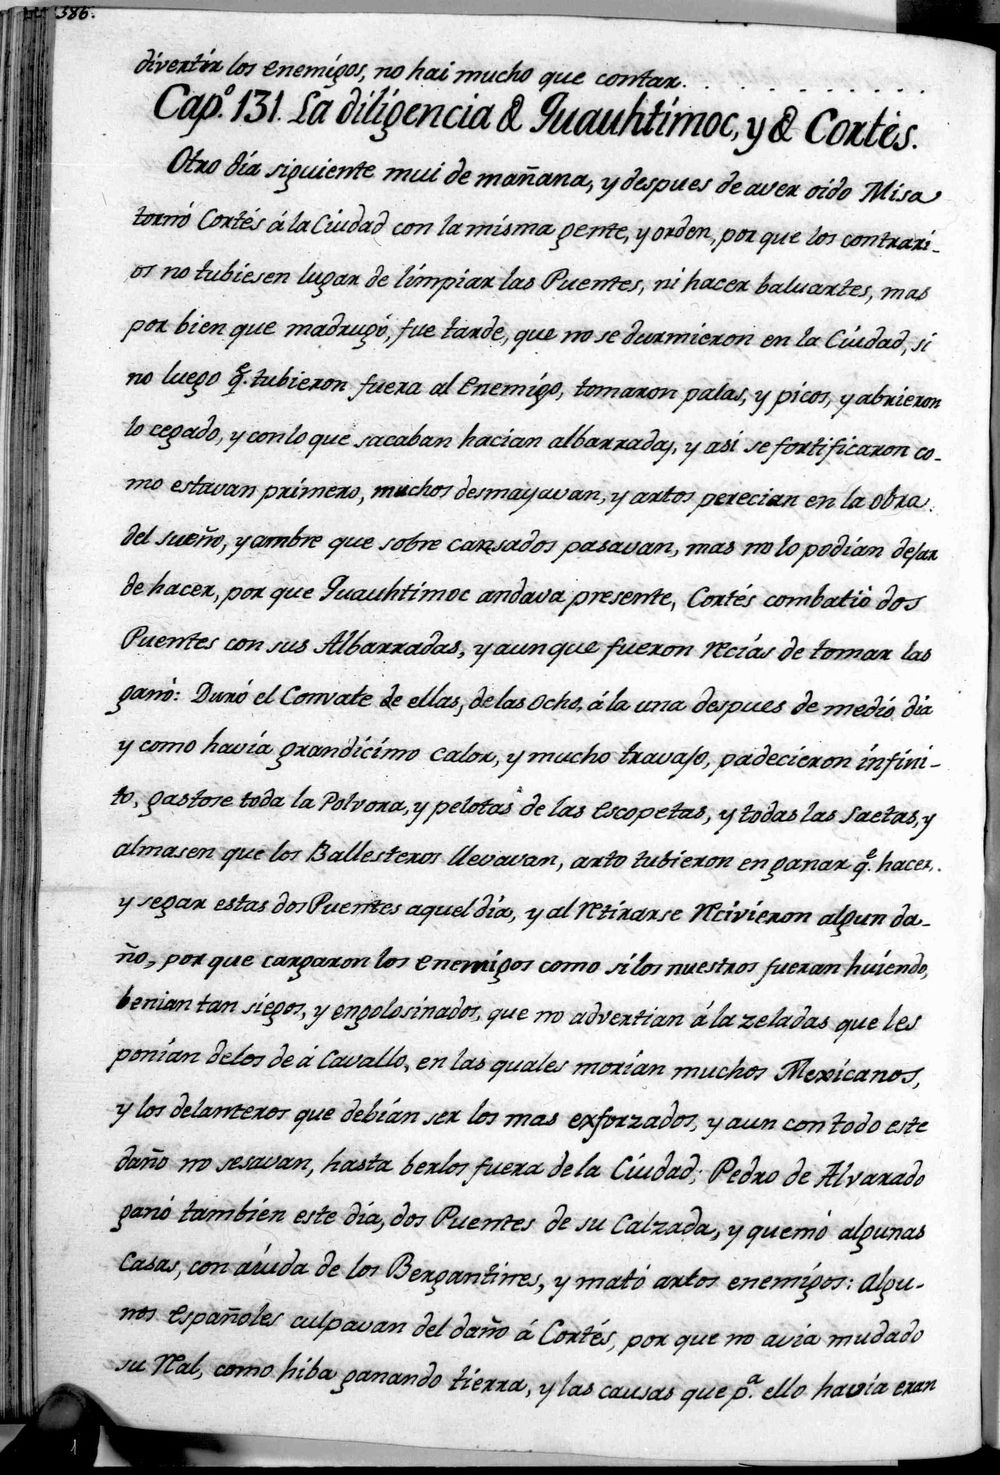 386.
divertir los enemigos, no hai mucho que contar. . . . . . . . . . . .
Capº. 131. La diligencia d Quauhtimoc, y d Cortés.
Otro dia siguiente mui de mañana, y despues de aver oido Misa
tornó Cortés á la Ciudad con la misma gente, y orden, por que los contrari-
os no tubiesen lugar de limpiar las Puentes, ni hacer baluartes, mas
por bien que madrugó, fue tarde, que no se durmieron en la Ciudad, si
no luego qᵉ. tubieron fuera al enemigo, tomaron palas, y picos, y abrieron
lo cegado, y con lo que sacaban hacian albarradas, y asi se fortificaron co-
mo estavan primero, muchos desmayavan, y artos perecian en la obra.
del sueño, y ambre que sobre cansados pasavan, mas no lo podian dejar
de hacer, por que Quauhtimoc andava presente, Cortés combatió dos
Puentes con sus Albarradas, y aunque fueron Recias de tomar las
ganó: Duró el Convate de ellas, de las ocho, á la una despues de medio dia
y como havia grandicimo calor, y mucho travajo, padecieron infini-
to, gastose toda la Polvora, y pelotas de las escopetas, y todas las saetas, y
almasen que los Ballesteros llevavan, arto tubieron en ganar qᵉ. hacer,
y segar estas dos Puentes aquel dia, y al Retirarse Recivieron algun da-
ño, por que cargaron los enemigos como si los nuestros fueran huiendo,
benian tan siegos, y engolosinados, que no advertian á la zeladas que les
ponian de los de á Cavallo, en las quales morian muchos Mexicanos,
y los delanteros que debian ser los mas exforzados, y aun con todo este
daño no sesavan, hasta berlos fuera de la Ciudad; Pedro de Alvarado
ganó tambien este dia, dos Puentes de su Calzada, y quemó algunas
Casas, con aiuda de los Bergantines, y mató artos enemigos: algu-
nos españoles culpavan del daño á Cortés, por que no avia mudado
su Real, como hiba ganando tierra, y las causas que pᵃ. ello havia eran
1